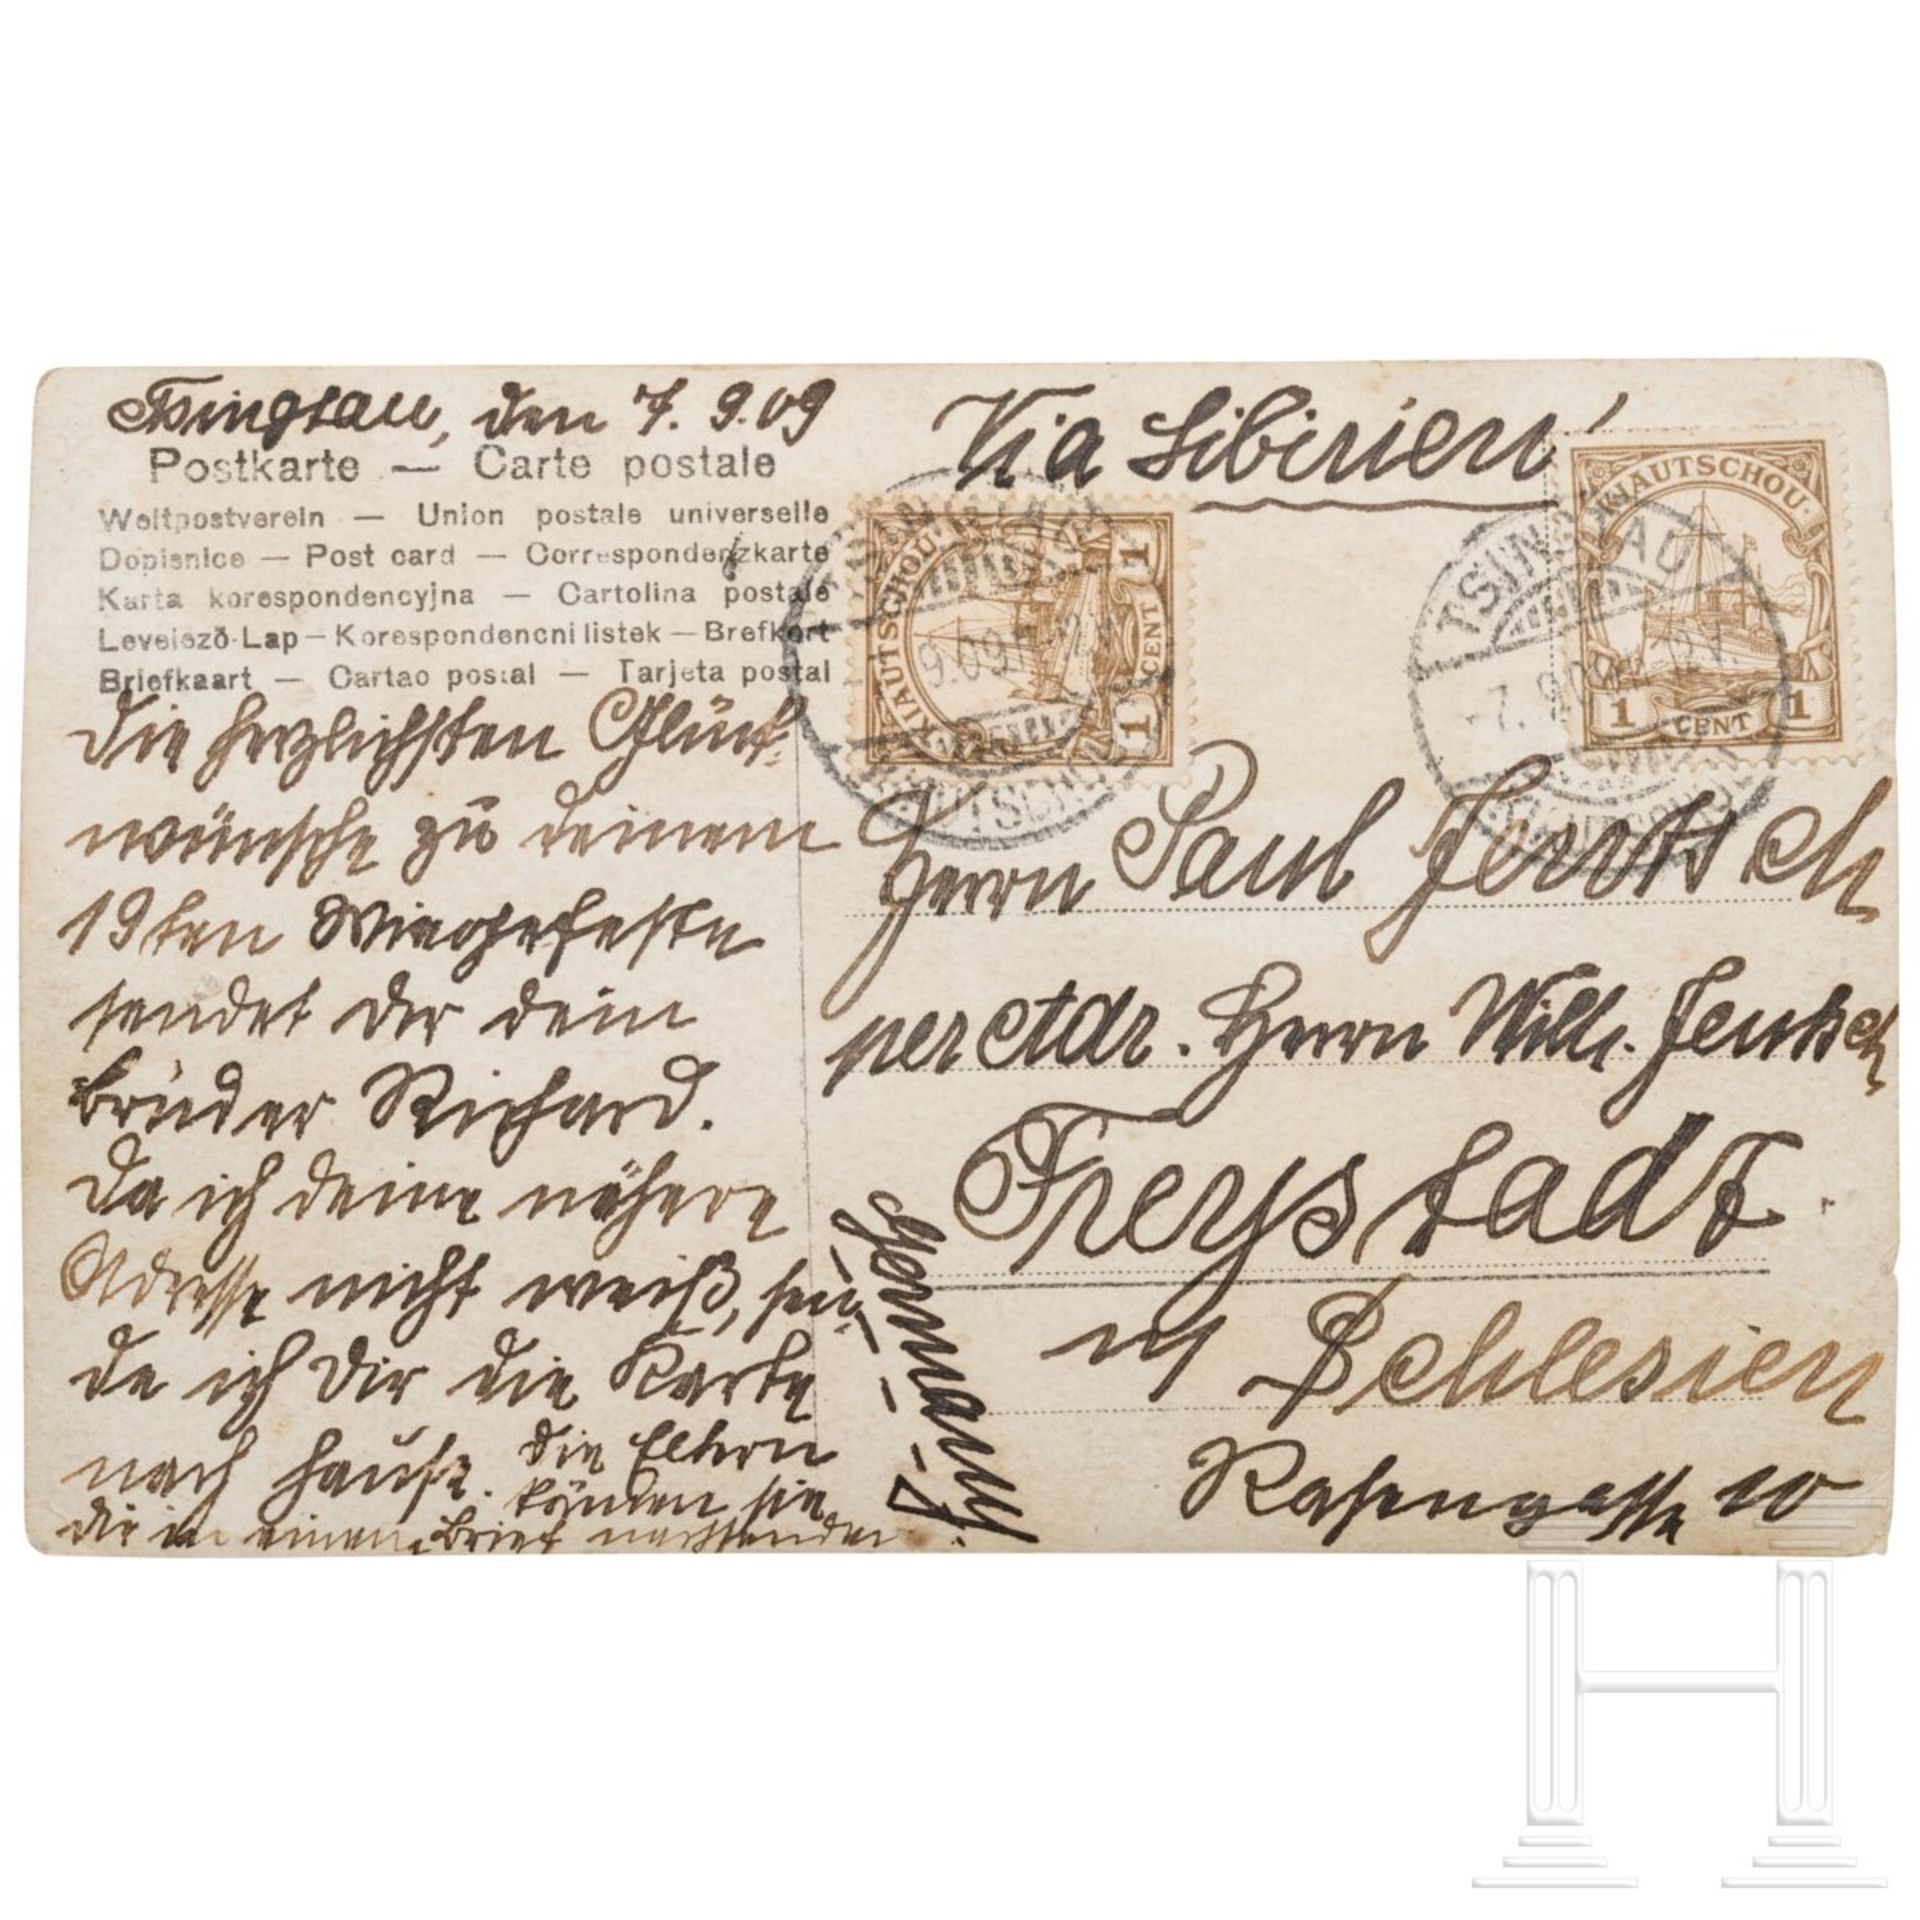 Tsingtau, den 7. 9. 09
Postkarte — Carte postale
Weltpostverein — Union postale universelle
Dopisnice — Post card — Correspondenzkarte
Karta korespondencyjna — Cartolina postale
Levelező-Lap — Korespondencni listek — Brefkort
Briefkaart — Cartao postal — Tarjeta postal
Die herzlichsten Glück-
wünsche zu deinem
19ten Wiegenfeste
sendet dir dein
Bruder Richard.
Da ich deine nähere
Adresse nicht weiß, sen-
de ich Dir die Karte
nach hause. Die Eltern
können sie
dir in einem Brief nachsenden
Via Sibirien!
KIAUTSCHOU
1 CENT 1
KIAUTSCHOU
1 CENT 1
TSINGTAU
-7. 9.09
Herrn Paul Jentsch
per Adr. Herrn Wilh. Jentsch
Freystadt
in Schlesien
Rosengasse 10
Germany
H